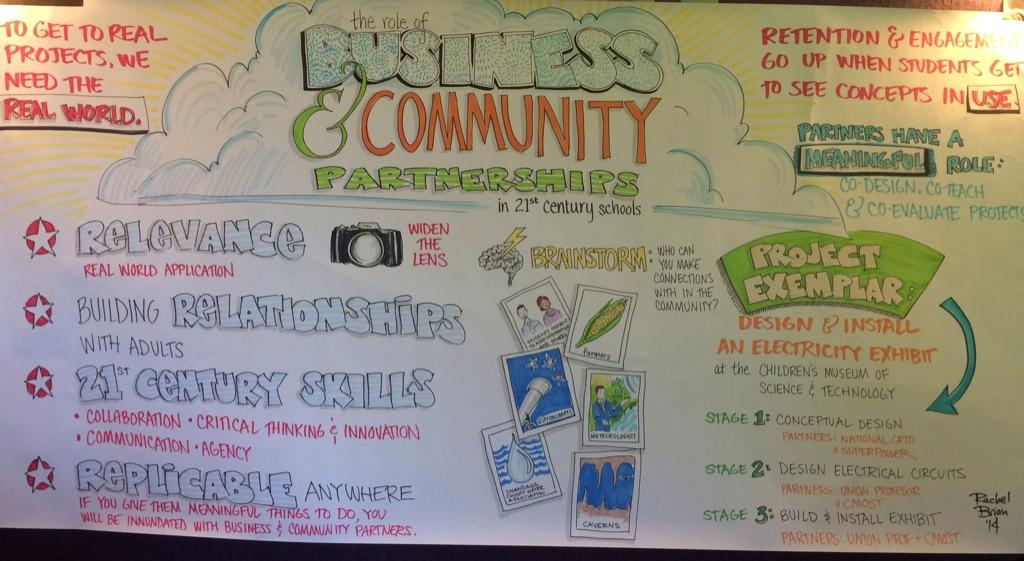 TO GET TO REAL
PROJECTS, WE
NEED THE
REAL WORLD.
the role of
BUSINESS
& COMMUNITY
PARTNERSHIPS
in 21st century schools
RETENTION & ENGAGEMEN
GO UP WHEN STUDENTS GET
TO SEE CONCEPTS IN USE.
PARTNERS HAVE A
MEANINGFUL ROLE:
CO-DESIGN, CO-TEACH
& CO-EVALUATE PROJECTS
RELEVANCE
REAL WORLD APPLICATION
WIDEN
THE
LENS
BUILDING RELATIONSHIPS
WITH ADULTS
21ST CENTURY SKILLS
• COLLABORATION • CRITICAL THINKING & INNOVATION
• COMMUNICATION • AGENCY
REPLICABLE ANYWHERE
IF YOU GIVE THEM MEANINGFUL THINGS TO DO, YOU
WILL BE INNUNDATED WITH BUSINESS & COMMUNITY PARTNERS.
BRAINSTORM: WHO CAN
YOU MAKE
CONNECTIONS
WITH IN THE
COMMUNITY?
farmers
METEOROLOGISTS
ONANDAGA
COUNTY WATER
ASSOCIATION
CAVERNS
PROJECT
EXEMPLAR:
DESIGN & INSTALL
AN ELECTRICITY EXHIBIT
at the CHILDREN'S MUSEUM OF
SCIENCE & TECHNOLOGY
STAGE 1: CONCEPTUAL DESIGN
PARTNERS: NATIONAL GRID
+ SUPERPOWER
STAGE 2: DESIGN ELECTRICAL CIRCUITS
PARTNERS: UNION PROFESOR
+ CMOST
STAGE 3: BUILD & INSTALL EXHIBIT
PARTNERS: UNION PROF + CMOST
Rachel
Brian
'14